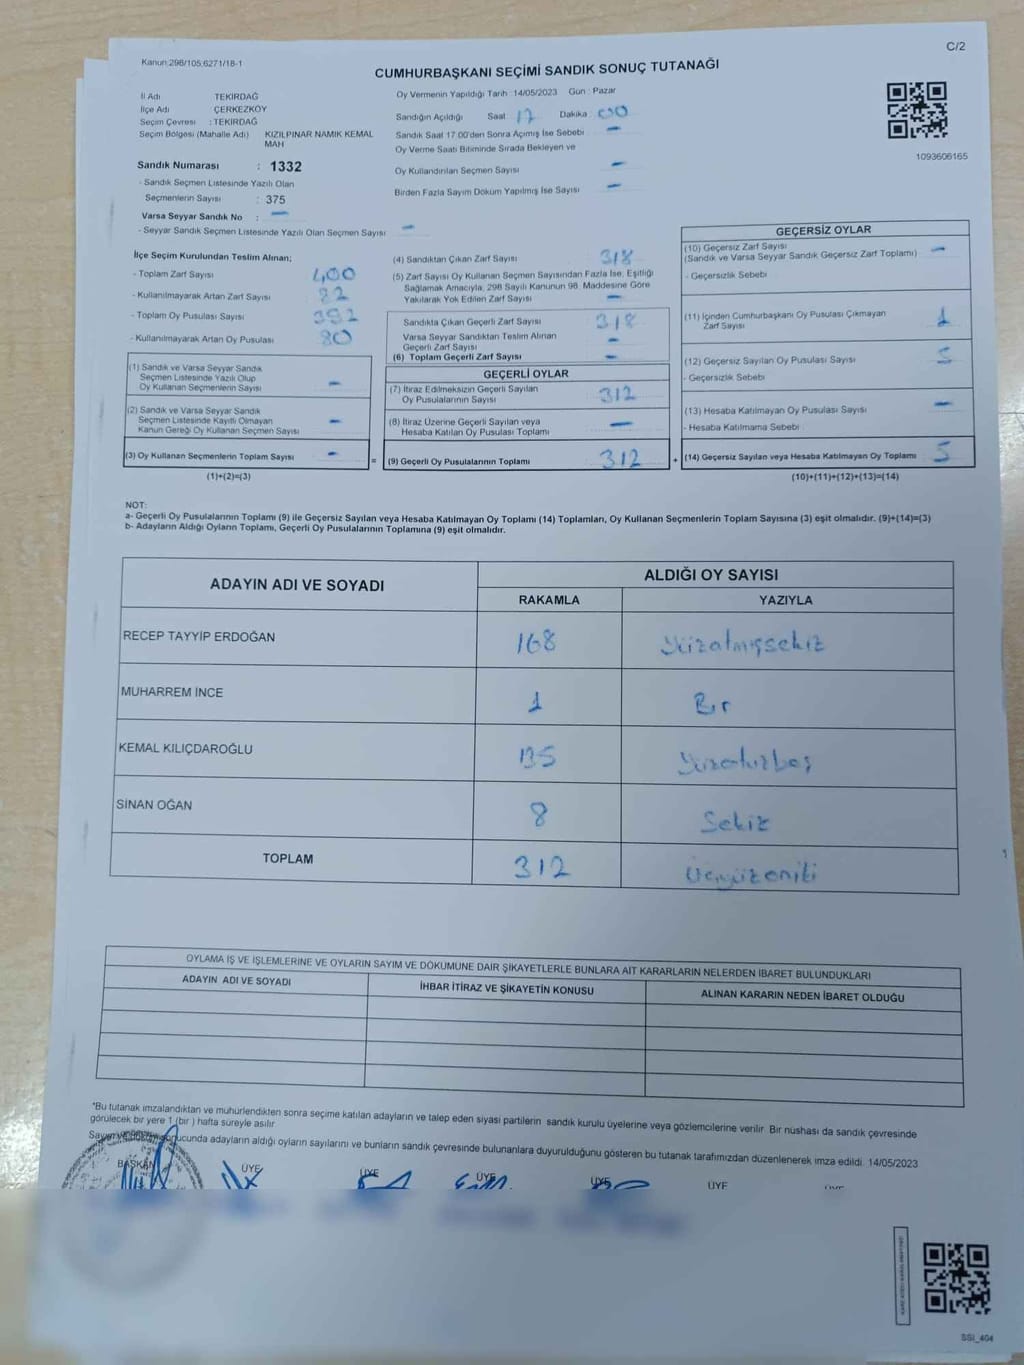 C/2
Kanun:298/105,6271/18-1
CUMHURBAŞKANI SEÇİMİ SANDIK SONUÇ TUTANAĞI
İl Adı TEKİRDAĞ
İlçe Adı ÇERKEZKÖY
Seçim Çevresi : TEKİRDAĞ
Seçim Bölgesi (Mahalle Adı) KIZILPINAR NAMIK KEMAL
MAH
Sandık Numarası : 1332
- Sandık Seçmen Listesinde Yazılı Olan
Seçmenlerin Sayısı : 375
Varsa Seyyar Sandık No : -
- Seyyar Sandık Seçmen Listesinde Yazılı Olan Seçmen Sayısı -
Oy Vermenin Yapıldığı Tarih :14/05/2023 Gün : Pazar
Sandığın Açıldığı Saat 17 Dakika 00
Sandık Saat 17.00'den Sonra Açılmış İse Sebebi -
Oy Verme Saati Bitiminde Sırada Bekleyen ve
Oy Kullandırılan Seçmen Sayısı -
Birden Fazla Sayım Döküm Yapılmış İse Sayısı -
1093606165
İlçe Seçim Kurulundan Teslim Alınan;
- Toplam Zarf Sayısı 400
- Kullanılmayarak Artan Zarf Sayısı 82
- Toplam Oy Pusulası Sayısı 392
- Kullanılmayarak Artan Oy Pusulası 80
(1) Sandık ve Varsa Seyyar Sandık
Seçmen Listesinde Yazılı Olup
Oy Kullanan Seçmenlerin Sayısı -
(2) Sandık ve Varsa Seyyar Sandık
Seçmen Listesinde Kayıtlı Olmayan
Kanun Gereği Oy Kullanan Seçmen Sayısı -
(3) Oy Kullanan Seçmenlerin Toplam Sayısı -
(1)+(2)=(3)
(4) Sandıktan Çıkan Zarf Sayısı 318
(5) Zarf Sayısı Oy Kullanan Seçmen Sayısından Fazla İse, Eşitliği
Sağlamak Amacıyla, 298 Sayılı Kanunun 98. Maddesine Göre
Yakılarak Yok Edilen Zarf Sayısı -
Sandıkta Çıkan Geçerli Zarf Sayısı 318
Varsa Seyyar Sandıktan Teslim Alınan
Geçerli Zarf Sayısı -
(6) Toplam Geçerli Zarf Sayısı -
GEÇERLİ OYLAR
(7) İtiraz Edilmeksizin Geçerli Sayılan
Oy Pusulalarının Sayısı 312
(8) İtiraz Üzerine Geçerli Sayılan veya
Hesaba Katılan Oy Pusulası Toplamı -
= (9) Geçerli Oy Pusulalarının Toplamı 312 +
GEÇERSİZ OYLAR
(10) Geçersiz Zarf Sayısı
(Sandık ve Varsa Seyyar Sandık Geçersiz Zarf Toplamı) -
- Geçersizlik Sebebi
(11) İçinden Cumhurbaşkanı Oy Pusulası Çıkmayan
Zarf Sayısı 1
(12) Geçersiz Sayılan Oy Pusulası Sayısı 5
- Geçersizlik Sebebi
(13) Hesaba Katılmayan Oy Pusulası Sayısı -
- Hesaba Katılmama Sebebi
(14) Geçersiz Sayılan veya Hesaba Katılmayan Oy Toplamı 5
(10)+(11)+(12)+(13)=(14)
NOT:
a- Geçerli Oy Pusulalarının Toplamı (9) ile Geçersiz Sayılan veya Hesaba Katılmayan Oy Toplamı (14) Toplamları, Oy Kullanan Seçmenlerin Toplam Sayısına (3) eşit olmalıdır. (9)+(14)=(3)
b- Adayların Aldığı Oyların Toplamı, Geçerli Oy Pusulalarının Toplamına (9) eşit olmalıdır.
ADAYIN ADI VE SOYADI ALDIĞI OY SAYISI
RAKAMLA YAZIYLA
RECEP TAYYİP ERDOĞAN 168 Yüzatmışsekiz
MUHARREM İNCE 1 Bir
KEMAL KILIÇDAROĞLU 135 Yüzotuzbeş
SİNAN OĞAN 8 Sekiz
TOPLAM 312 Üçyüzoniki
OYLAMA İŞ VE İŞLEMLERİNE VE OYLARIN SAYIM VE DÖKÜMÜNE DAİR ŞİKAYETLERLE BUNLARA AİT KARARLARIN NELERDEN İBARET BULUNDUKLARI
ADAYIN ADI VE SOYADI İHBAR İTİRAZ VE ŞİKAYETİN KONUSU ALINAN KARARIN NEDEN İBARET OLDUĞU
*Bu tutanak imzalandıktan ve mühürlendikten sonra seçime katılan adayların ve talep eden siyasi partilerin sandık kurulu üyelerine veya gözlemcilerine verilir. Bir nüshası da sandık çevresinde
görülecek bir yere 1 (bir) hafta süreyle asılır.
sonucunda adayların aldığı oyların sayılarını ve bunların sandık çevresinde bulunanlara duyurulduğunu gösteren bu tutanak tarafımızdan düzenlenerek imza edildi. 14/05/2023
BAŞKAN ÜYE ÜYE ÜYE ÜYE ÜYE ÜYE
SSI_404